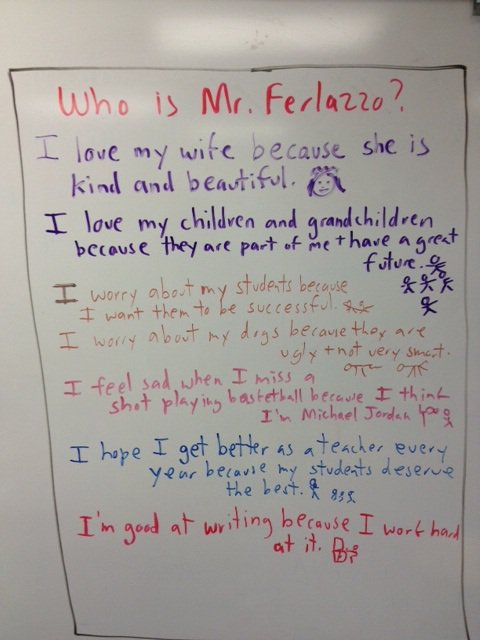 Who is Mr. Ferlazzo?
I love my wife because she is
kind and beautiful.
I love my children and grandchildren
because they are part of me + have a great
future.
I worry about my students because
I want them to be successful.
I worry about my dogs because they are
ugly + not very smart.
I feel sad when I miss a
shot playing basketball because I think
I'm Michael Jordan
I hope I get better as a teacher every
year because my students deserve
the best.
I'm good at writing because I work hard
at it.